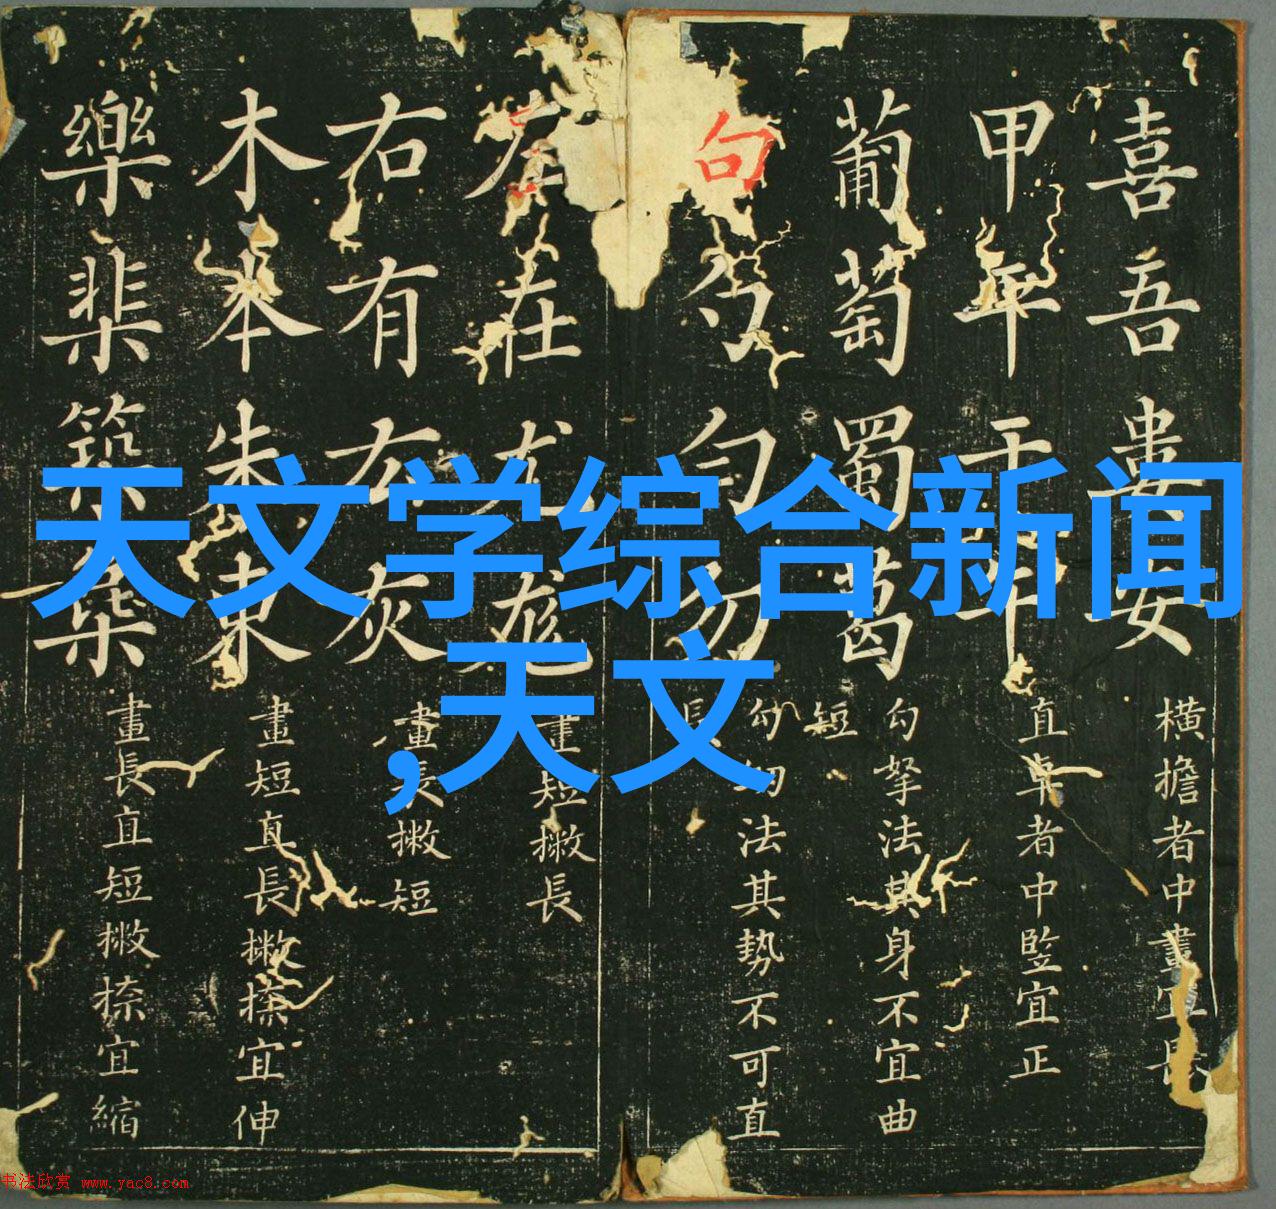 天文学综合新闻
,天文
喜吾婁
横擔者中畫宜
甲平干
直卓者中監宜正
葡萄蜀葛
勾拏法其身不宜曲
短
句勹勿
勾法其勢不可直
左在尤
畫短撇長
右有右灰
畫長撇短
木本朱東
畫短直長撇捺宜伸
樂棐築
畫長直短撇捺宜縮
书法欣赏 www.yac8.com